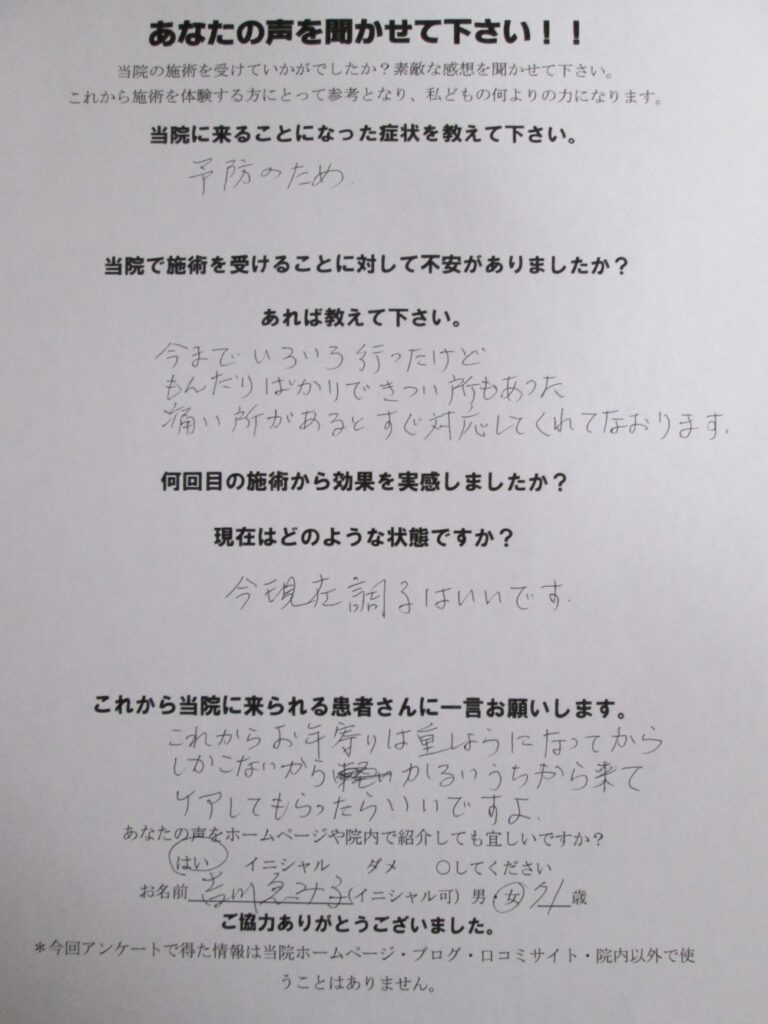 あなたの声を聞かせて下さい！！
当院の施術を受けていかがでしたか？素敵な感想を聞かせて下さい。
これから施術を体験する方にとって参考となり、私どもの何よりの力になります。
当院に来ることになった症状を教えて下さい。
予防のため
当院で施術を受けることに対して不安がありましたか？
あれば教えて下さい。
今までいろいろ行ったけど
もんだりばかりできつい所もあった
痛い所があるとすぐ対応してくれてなおります.
何回目の施術から効果を実感しましたか？
現在はどのような状態ですか？
今現在調子はいいです.
これから当院に来られる患者さんに一言お願いします。
これからお年寄りは重しょうになってから
しかこないからかるいうちから来て
ケアしてもらったらいいですよ.
あなたの声をホームページや院内で紹介しても宜しいですか？
はい イニシャル ダメ ○してください
お名前 吉川ゑみ子(イニシャル可) 男・女 71歳
ご協力ありがとうございました。
＊今回アンケートで得た情報は当院ホームページ・ブログ・口コミサイト・院内以外で使
うことはありません。